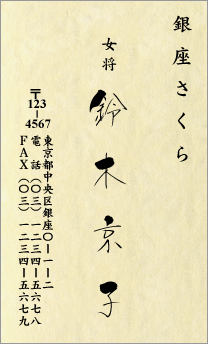 銀座さくら
女将
鈴木京子
〒123-4567
東京都中央区銀座〇-一-二
電話(〇三)一二三四-五六七八
FAX(〇三)一二三四-五六七九